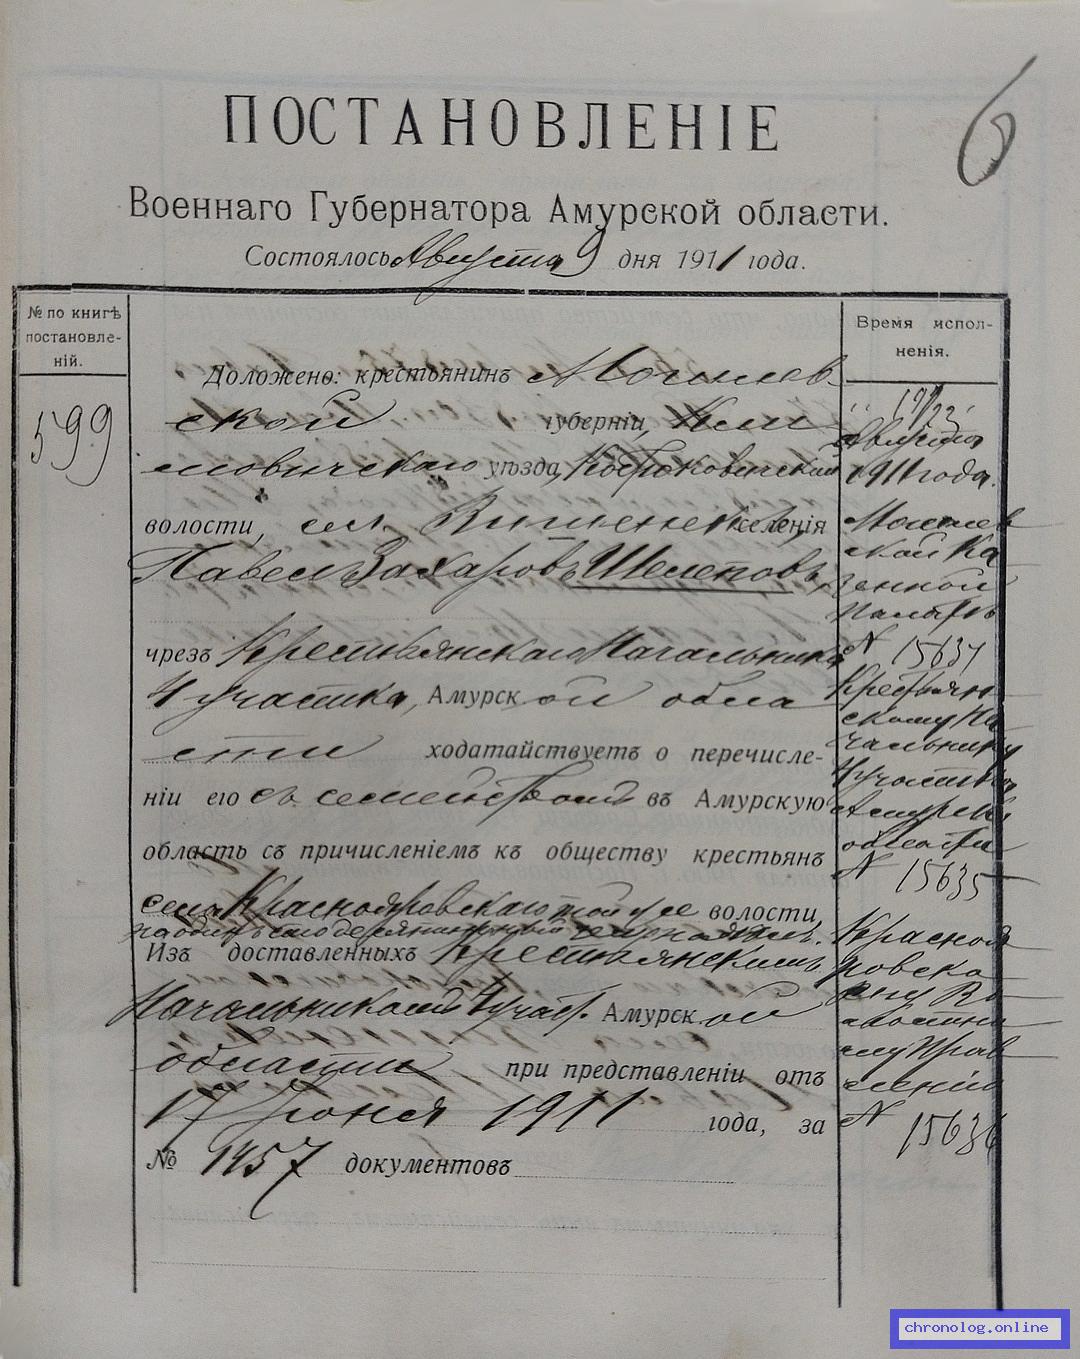 6
ПОСТАНОВЛЕНІЕ
Военнаго Губернатора Амурской области.
Состоялось Августа 9 дня 1911 года.
№ по книгѣ
постановле-
ній.
599
Доложено: крестьянинъ Могилев-
ской губерніи, Кли
мовичскаго уѣзда,
волости, селенія
Павелъ Захаровъ Шелеповъ
чрезъ Крестьянскаго Начальника
4 участка, Амурской обла
сти ходатайствуетъ о перечисле-
ніи его съ семействомъ въ Амурскую
область съ причисленіемъ къ обществу крестьянъ
села Красноярова той же волости,
Изъ доставленныхъ Крестьянскимъ
Начальникомъ 4 участ. Амурской
области при представленіи отъ
17 Іюня 1911 года, за
№ 1457 документовъ
Время испол-
ненія.
Августа
1911 года.
Могилев
ской Ка
зенной
Палатѣ
N 15637
Крестьян
скому На
чальнику
4 участка
Амурской
области
N 15635
Красноя
ровско
му Во
лостно
му Прав
ленію
N 15636
chronolog.online